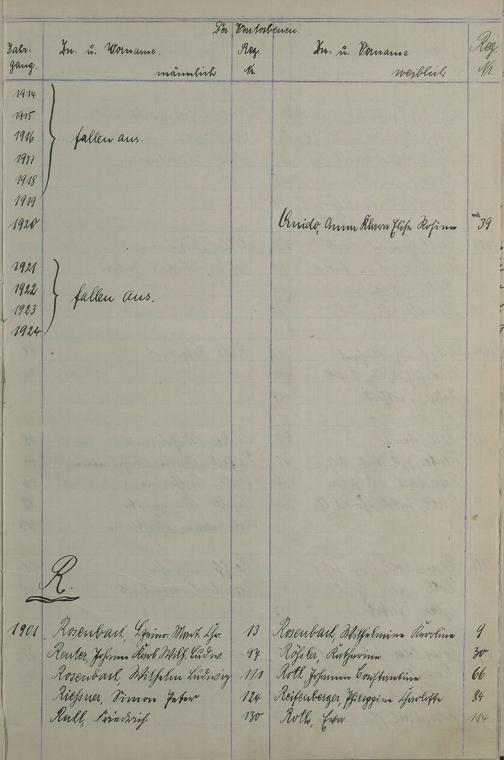 Der Verstorbenen
Jahrgang. Zu. u. Vorname. männlich Reg. Nr. Zu. u. Vorname weiblich Reg. Nr.
1914
1915
1916 fallen aus.
1917
1918
1919
1920 Quido, Anna Klara Elise Rosine 39
1921
1922 fallen aus.
1923
1924
R.
1901 Rosenbach, Mart. Chr. 13 Rosenbach, Wilhelmine Karoline 9
Reuter, Johann Karl Wilh. Ludw. 97 Rößler, Katharine 30
Rosenbach, Wilhelm Ludwig 111 Roth Johanna Constantine 66
Rießner, Simon Peter 124 Reifenberger, Philippine Charlotte 84
Rull, Friedrich 130 Roth, Eva 114